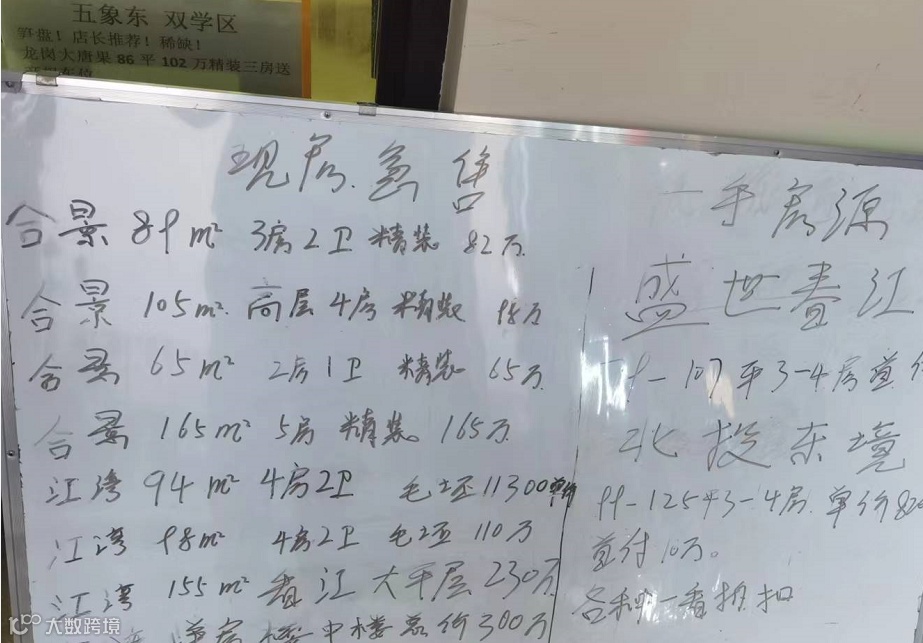 五象东 双学区
笋盘！店长推荐！稀缺！
龙岗大唐果86平102万精装三房送
现房.急售
合景 89m² 3房2卫 精装 82万.
合景 105m². 高层4房 精装 98万
合景 65m² 2房1卫 精装 65万
合景 165m² 5房 精装. 165万
江湾 94m² 4房2卫 毛坯11300单价
江湾 98m² 4房2卫 毛坯 110万
江湾 155m² 香江大平层230万
楼中楼 总价300万
一手房源
盛世春江
-107平3-4房首付
北投东境
99-125平3-4房.单价820
首付10万。
各种折扣
大数跨境